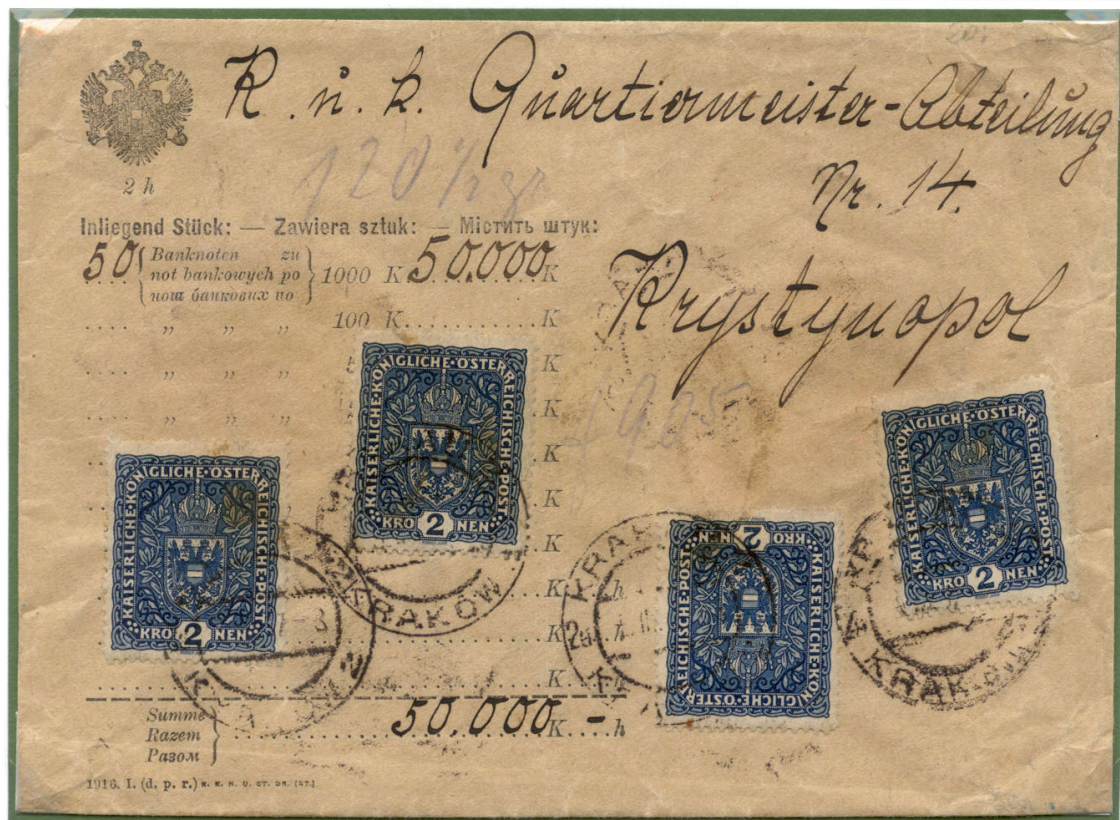 K. u. k. Quartiermeister-Abteilung
Nr. 14.
2 h
120 1/2 gr
Inliegend Stück: — Zawiera sztuk: — Містить штук:
50 { Banknoten zu
not bankowych po } 1000 K 50.000 K
нот банкових по
Krystynopol
.... „ „ „ 100 K............K
K
K
K
K
K
h
h
KAISERLICHE·KÖNIGLICHE·ÖSTERREICHISCHE·POST
KRO 2 NEN
KAISERLICHE·KÖNIGLICHE·ÖSTERREICHISCHE·POST
KRO 2 NEN
KAISERLICHE·KÖNIGLICHE·ÖSTERREICHISCHE·POST
KRO 2 NEN
KAISERLICHE·KÖNIGLICHE·ÖSTERREICHISCHE·POST
KRO 2 NEN
KRAKÓW
Summe
Razem 50.000 K - h
Разом
1916. I. (d. p. r.)